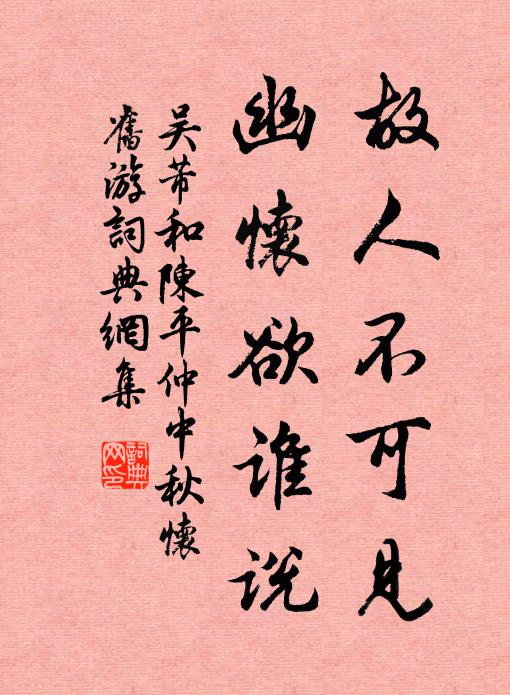 故人不可見
幽懷欲誰説
吴芾和陳平仲中秋懷
舊游詞典網集
詞典
网印